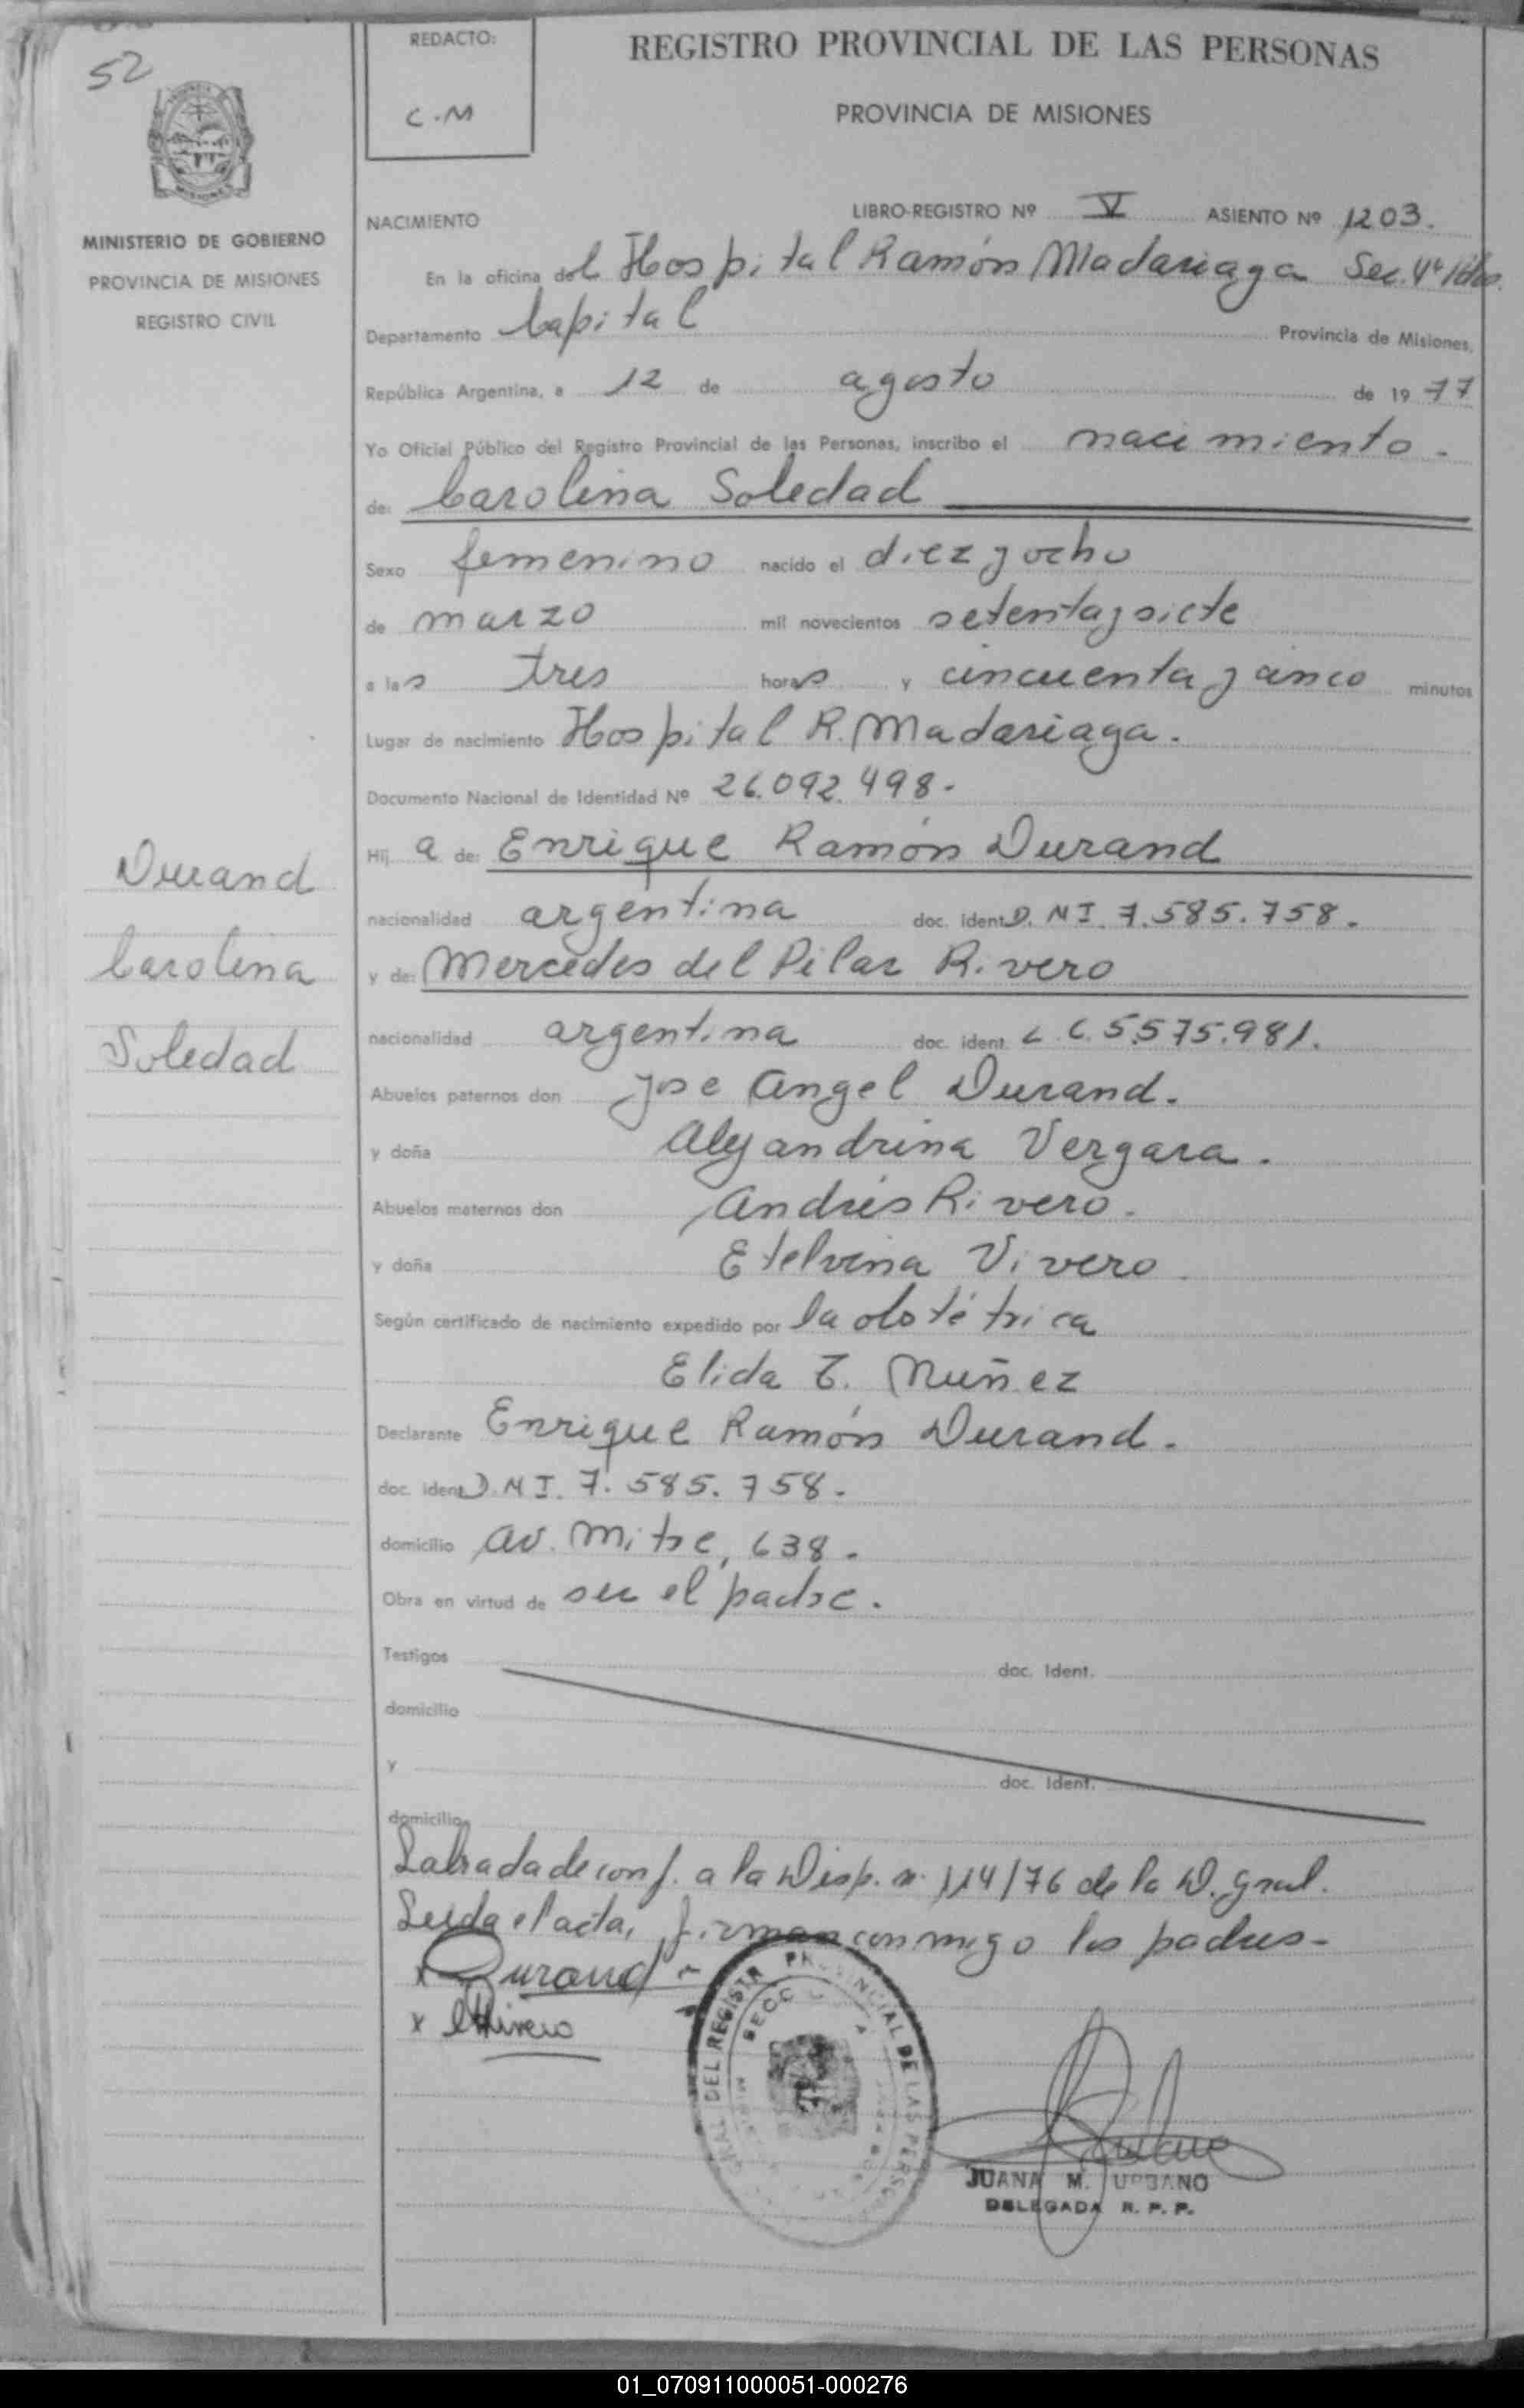 52
REDACTO:
C.M
REGISTRO PROVINCIAL DE LAS PERSONAS
PROVINCIA DE MISIONES
MINISTERIO DE GOBIERNO
PROVINCIA DE MISIONES
REGISTRO CIVIL
NACIMIENTO LIBRO-REGISTRO Nº V ASIENTO Nº 1203.
En la oficina del Hospital Ramón Madariaga Sec. Vª
Departamento Capital Provincia de Misiones,
República Argentina, a 12 de agosto de 1977
Yo Oficial Público del Registro Provincial de las Personas, inscribo el nacimiento.
de: Carolina Soledad
Sexo femenino nacido el diez y ocho
de marzo mil novecientos setenta y siete
a las tres horas y cincuenta y cinco minutos
Lugar de nacimiento Hospital R. Madariaga.
Documento Nacional de Identidad Nº 26.092.498.
Hij a de: Enrique Ramón Durand
nacionalidad argentina doc. ident D.N.I. 7.585.758.
y de: Mercedes del Pilar Rivero
nacionalidad argentina doc. ident. L.C. 5.575.981.
Abuelos paternos don Jose Angel Durand.
y doña Alejandrina Vergara.
Abuelos maternos don Andrés Rivero.
y doña Etelvina Vivero.
Según certificado de nacimiento expedido por la obstétrica
Elida T. Nuñez
Declarante Enrique Ramón Durand.
doc. ident D.N.I. 7.585.758.
domicilio Av. Mitre, 638.
Obra en virtud de ser el padre.
Testigos doc. Ident.
domicilio
y doc. Ident.
domicilio
Labrada de conf. a la Disp. n. 114/76 de la D. Gral.
Leida el acta, firman conmigo los padres-
x Durand
x MRivero
Durand
Carolina
Soledad
DEL REGISTR PROVINCIAL DE LAS PERS
JUANA M. URBANO
DELEGADA R. P. P.
01_070911000051-000276